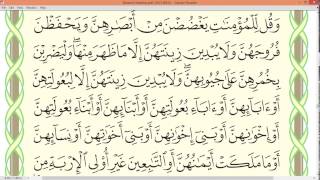 وَقُل لِّلْمُؤْمِنَٰتِ يَغْضُضْنَ مِنْ أَبْصَٰرِهِنَّ وَيَحْفَظْنَ
فُرُوجَهُنَّ وَلَا يُبْدِينَ زِينَتَهُنَّ إِلَّا مَا ظَهَرَ مِنْهَا ۖ وَلْيَضْرِبْنَ
بِخُمُرِهِنَّ عَلَىٰ جُيُوبِهِنَّ ۖ وَلَا يُبْدِينَ زِينَتَهُنَّ إِلَّا لِبُعُولَتِهِنَّ
أَوْ ءَابَآئِهِنَّ أَوْ ءَابَآءِ بُعُولَتِهِنَّ أَوْ أَبْنَآئِهِنَّ أَوْ أَبْنَآءِ بُعُولَتِهِنَّ
أَوْ إِخْوَٰنِهِنَّ أَوْ بَنِىٓ إِخْوَٰنِهِنَّ أَوْ بَنِىٓ أَخَوَٰتِهِنَّ أَوْ نِسَآئِهِنَّ
أَوْ مَا مَلَكَتْ أَيْمَٰنُهُنَّ أَوِ ٱلتَّٰبِعِينَ غَيْرِ أُو۟لِى ٱلْإِرْبَةِ مِنَ